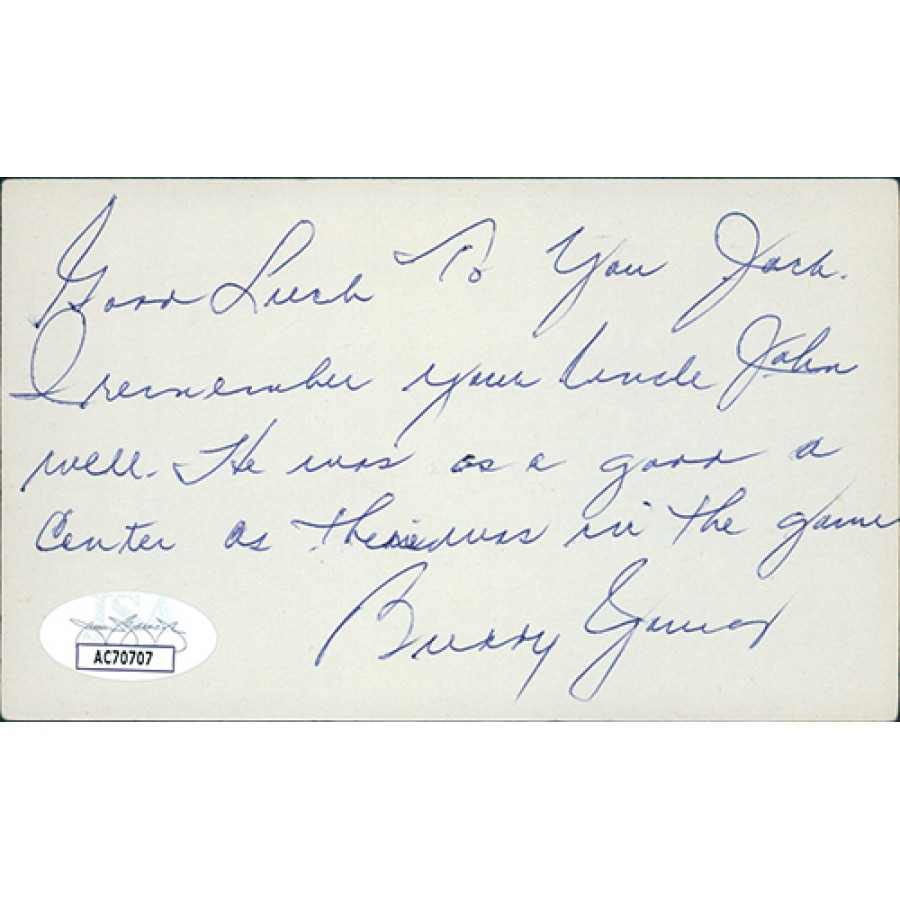 Good Luck To You Jack.
I remember your Uncle John
well. He was as a good a
Center as there was in the game
Buddy
AC70707